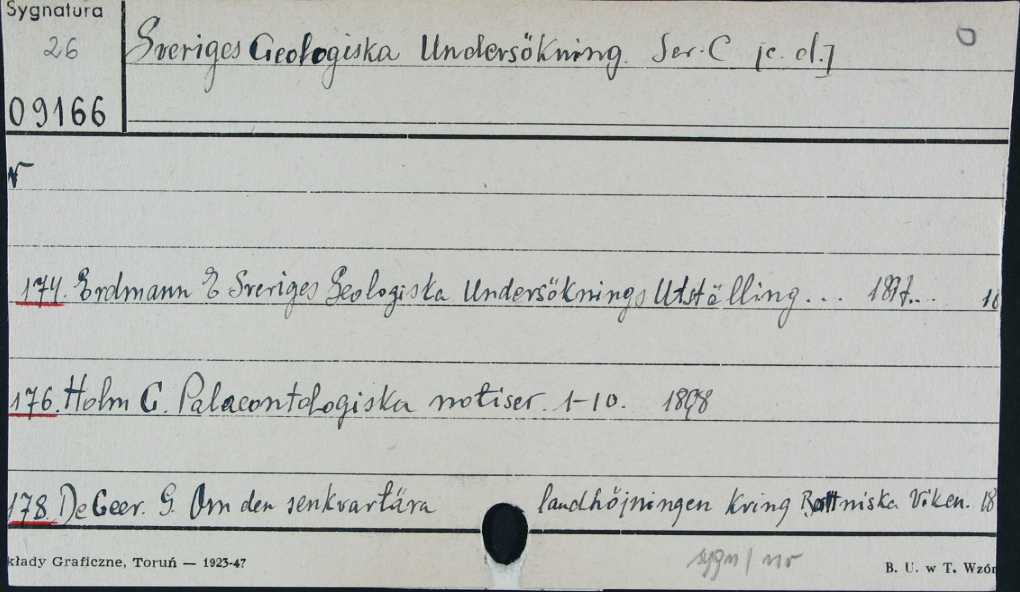 Sygnatura
26
09166
Sveriges Geologiska Undersökning. Ser. C [c. d.]
0
174. Erdmann E Sveriges Geologiska Undersöknings Utställing... 1897... 10
176. Holm G. Palaeontologiska notiser. 1-10. 1898
178. De Geer. G. Om den senkvartära landhöjningen kring Bottniska Viken. 18
kłady Graficzne, Toruń — 1923-47
sygn/nr
B. U. w T. Wzór